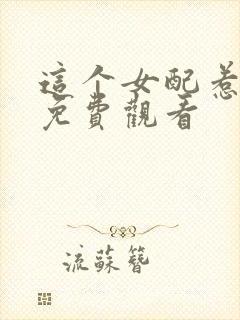 這个女配惹
免費觀看
流蘇簪